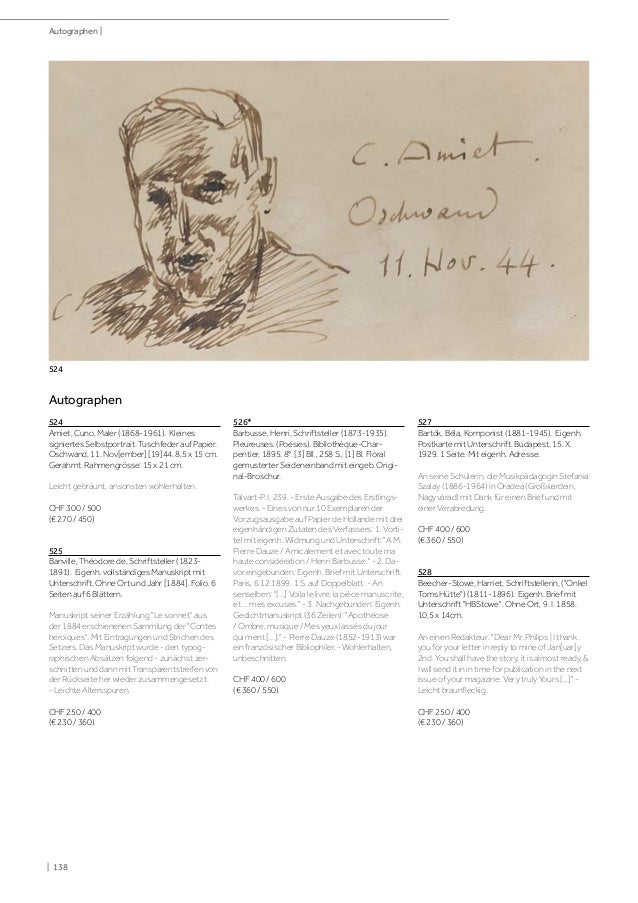 Autographen |
C. Amiet.
Oschwand
11. Nov. 44.
524
Autographen
524
Amiet, Cuno, Maler (1868-1961). Kleines
signiertes Selbstportrait. Tuschfeder auf Papier.
Oschwand, 11. Nov[ember] [19]44. 8,5 x 15 cm.
Gerahmt. Rahmengrösse: 15 x 21 cm.
Leicht gebräunt, ansonsten wohlerhalten.
CHF 300 / 500
(€ 270 / 450)
525
Banville, Théodore de, Schriftsteller (1823-
1891). Eigenh. vollständiges Manuskript mit
Unterschrift. Ohne Ort und Jahr [1884]. Folio. 6
Seiten auf 6 Blättern.
Manuskript seiner Erzählung "Le sonnet" aus
der 1884 erschienenen Sammlung der "Contes
héroïques". Mit Eintragungen und Strichen des
Setzers. Das Manuskript wurde - den typog-
raphischen Absätzen folgend - zunächst zer-
schnitten und dann mit Transparentstreifen von
der Rückseite her wieder zusammengesetzt.
- Leichte Altersspuren.
CHF 250 / 400
(€ 230 / 360)
526*
Barbusse, Henri, Schriftsteller (1873-1935).
Pleureuses. (Poésies). Bibliothèque-Char-
pentier, 1895. 8°. [3] Bll., 258 S., [1] Bl. Floral
gemusterter Seideneinband mit eingeb. Origi-
nal-Broschur.
Talvart-P. I, 239. - Erste Ausgabe des Erstlings-
werkes. - Eines von nur 10 Exemplaren der
Vorzugsausgabe auf Papier de Hollande mit drei
eigenhändigen Zutaten des Verfassers: 1. Vorti-
tel mit eigenh. Widmung und Unterschrift: "A M.
Pierre Dauze / Amicalement et avec toute ma
haute considération / Henri Barbusse." - 2. Da-
vor eingebunden: Eigenh. Brief mit Unterschrift.
Paris, 6.12.1899. 1 S. auf Doppelblatt. - An
denselben: "[...] Voila le livre, la pièce manuscrite,
et ... mes excuses." - 3. Nachgebunden: Eigenh.
Gedichtmanuskript (36 Zeilen): "Apothéose
/ Ombre, musique / Mes yeux lassés du jour
qui ment [...]." - Pierre Dauze (1852-1913) war
ein französischer Bibliophiler. - Wohlerhalten,
unbeschnitten.
CHF 400 / 600
(€ 360 / 550)
527
Bartók, Béla, Komponist (1881-1945). Eigenh.
Postkarte mit Unterschrift. Budapest, 15. X.
1929. 1 Seite. Mit eigenh. Adresse.
An seine Schülerin, die Musikpädagogin Stefania
Szalay (1886-1964) in Oradea (Großwardein,
Nagyvárad) mit Dank für einen Brief und mit
einer Verabredung.
CHF 400 / 600
(€ 360 / 550)
528
Beecher-Stowe, Harriet, Schriftstellerin, ("Onkel
Toms Hütte") (1811-1896). Eigenh. Brief mit
Unterschrift "HBStowe". Ohne Ort, 9. I. 1858.
10,5 x 14cm.
An einen Redakteur: "Dear Mr. Philips | I thank
you for your letter in reply to mine of Jan[uar]y
2nd. You shall have the story, it is almost ready, &
I will send it in in time for publication in the next
issue of your magazine. Very truly Yours [...]" -
Leicht braunfleckig.
CHF 250 / 400
(€ 230 / 360)
| 138